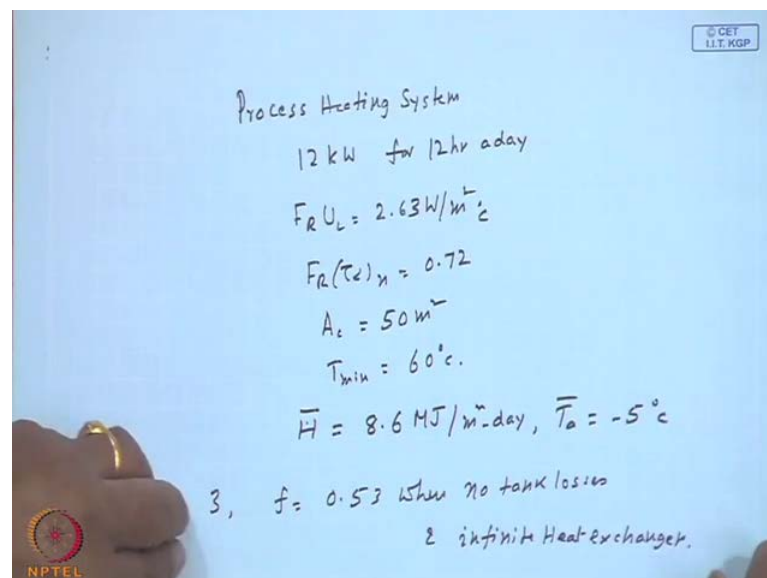 © CET
I.I.T. KGP
Process Heating System
12 kW for 12 hr a day
F_R U_L = 2.63 W/m²°C
F_R(τα)_n = 0.72
A_c = 50 m²
T_min = 60°C.
H̅ = 8.6 MJ/m²-day, T̅_a = -5°C
3, f = 0.53 when no tank losses
& infinite Heat exchanger.
NPTEL